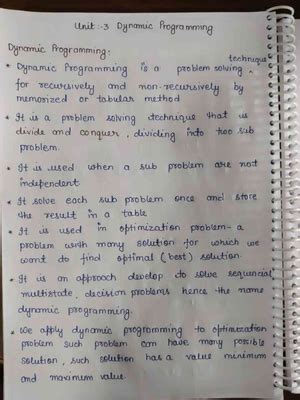 Unit :-3 Dynamic Programming
Dynamic Programming.
technique
* Dynamic Programming is a problem solving
for recursively and non-recursively by
memorized or tabular method
* It is a problem solving technique that is
divide and conquer, dividing into two sub
problem.
* It is used when a sub problem are not
independent.
* It solve each sub problem once and store
the result in a table
* It is used in optimization problem- a
problem with many solution for which we
want to find optimal (best) solution.
* It is an approach develop to solve sequencial,
multistate, decision problems hence the name
dynamic programming.
* We apply dynamic programming to optimization
problem such problem can have many possible
solution, such solution has a value minimum
and maximum value.